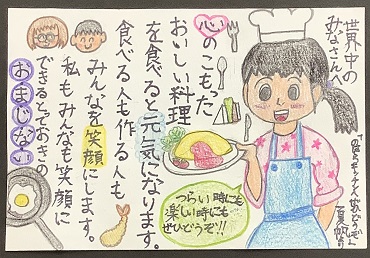 世界中の
みなさん
心のこもった
おいしい料理
を食べると元気になります。
食べる人も作る人も
みんなを笑顔にします。
私もみんなも笑顔に
できるとっておきの
おまじない
つらい時にも
楽しい時にも
ぜひどうぞ!!